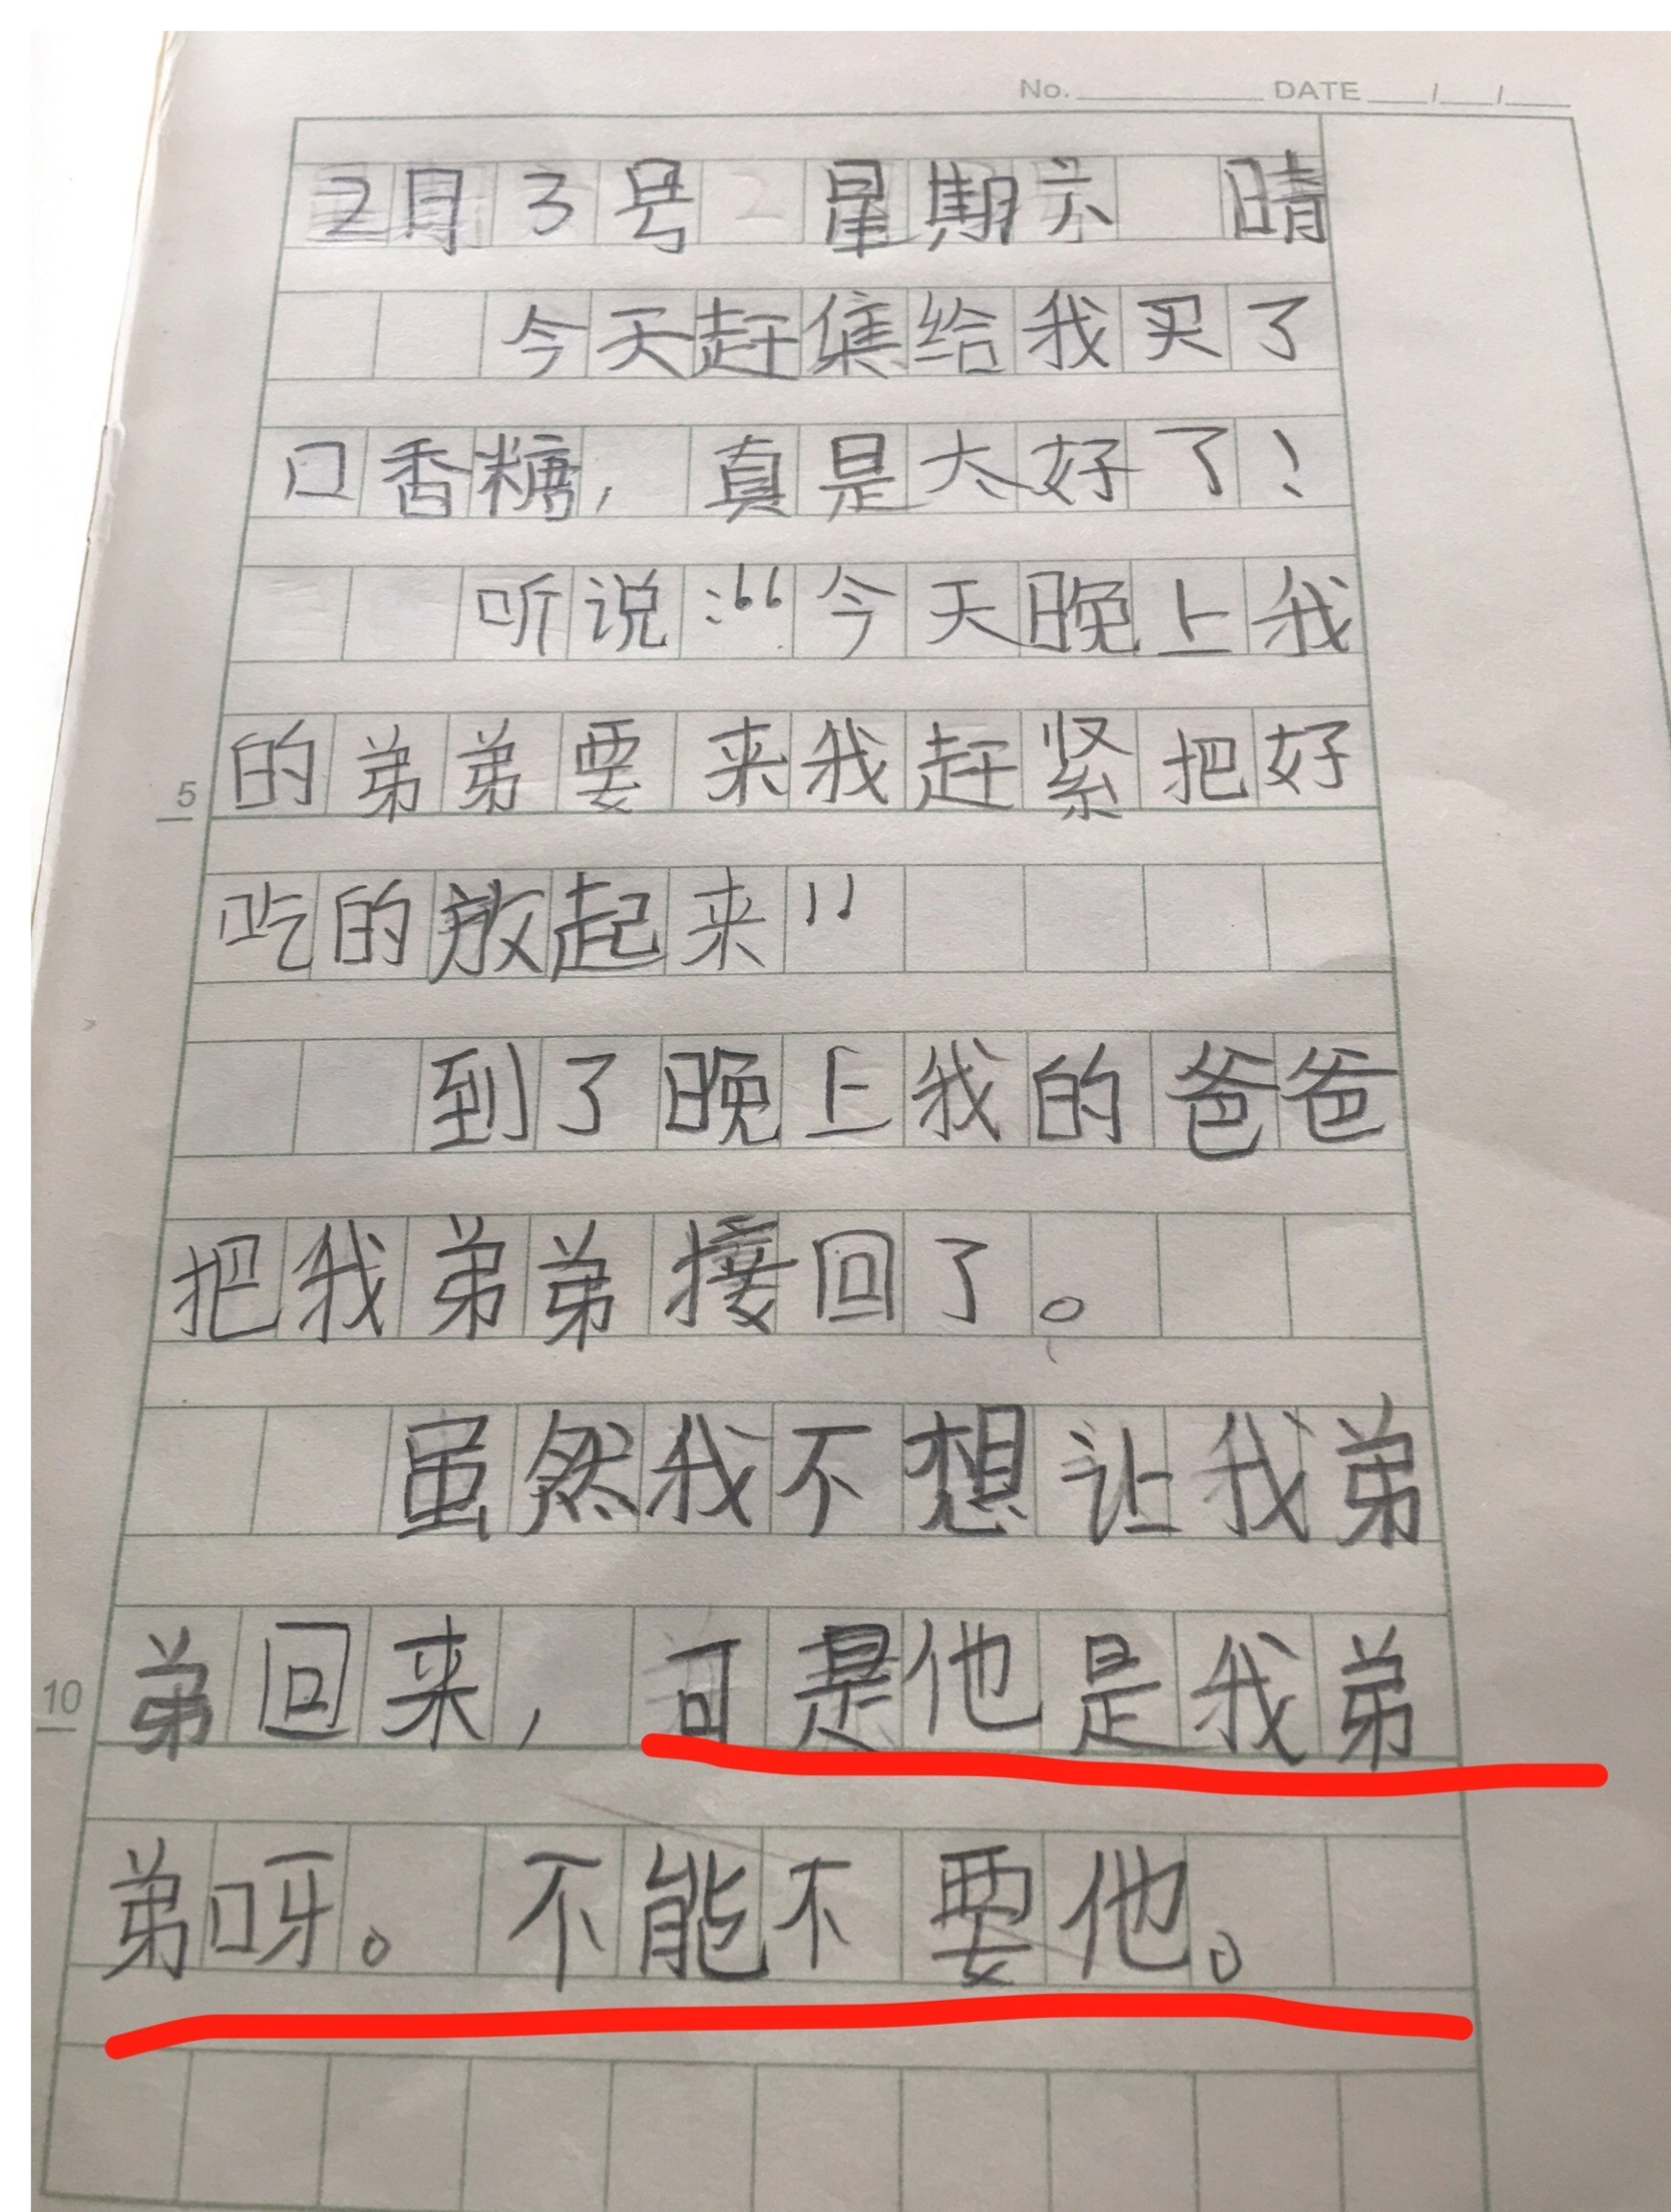 No. DATE / /
2月3号 星期六 晴
今天赶集给我买了
口香糖，真是太好了！
听说：“今天晚上我
的弟弟要来我赶紧把好
5
吃的放起来”
到了晚上我的爸爸
把我弟弟接回了。
虽然我不想让我弟
弟回来，可是他是我弟
10
弟呀。不能不要他。